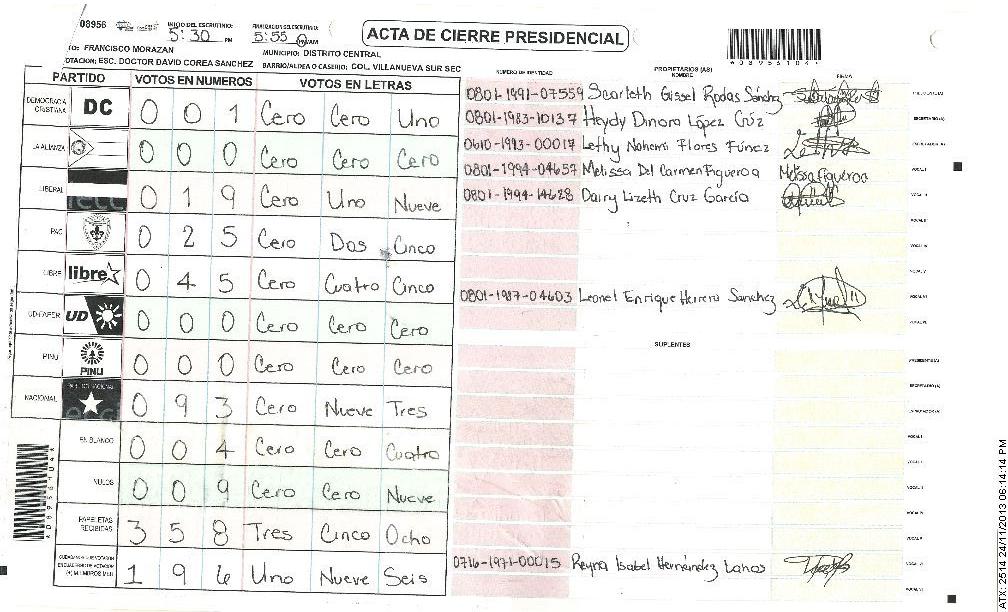 08956 INICIO DEL ESCRUTINIO: 5:30 PM FINALIZACION DEL ESCRUTINIO: 5:55 PM/AM
ACTA DE CIERRE PRESIDENCIAL
TO: FRANCISCO MORAZAN MUNICIPIO: DISTRITO CENTRAL
OTACION: ESC. DOCTOR DAVID COREA SANCHEZ BARRIO/ALDEA O CASERIO: COL. VILLANUEVA SUR SEC
PARTIDO VOTOS EN NUMEROS VOTOS EN LETRAS
NUMERO DE IDENTIDAD PROPIETARIOS (AS) NOMBRE FIRMA
DEMOCRACIA CRISTIANA DC 0 0 1 Cero Cero Uno
LA ALIANZA 0 0 0 Cero Cero Cero
LIBERAL 0 1 9 Cero Uno Nueve
PAC 0 2 5 Cero Dos Cinco
LIBRE libre 0 4 5 Cero Cuatro Cinco
UD-FAPER UD 0 0 0 Cero Cero Cero
PINU PINU 0 0 0 Cero Cero Cero
NACIONAL 0 9 3 Cero Nueve Tres
EN BLANCO 0 0 4 Cero Cero Cuatro
NULOS 0 0 9 Cero Cero Nueve
PAPELETAS RECIBIDAS 3 5 8 Tres Cinco Ocho
1 9 6 Uno Nueve Seis
0801-1991-07559 Scarleth Gissel Rodas Sánchez
0801-1983-10137 Heydy Dinora López Cruz
0610-1993-00017 Lethy Nohemi Flores Fúnez
0801-1994-04657 Melissa Del Carmen Figueroa Melissa Figueroa
0801-1994-14628 Dairy Lizeth Cruz García
0801-1987-04603 Leonel Enrique Herrera Sanchez
SUPLENTES
0716-1971-00015 Reyna Isabel Hernández Lanos
ATX: 2514 24/11/2013 06:14:14 PM